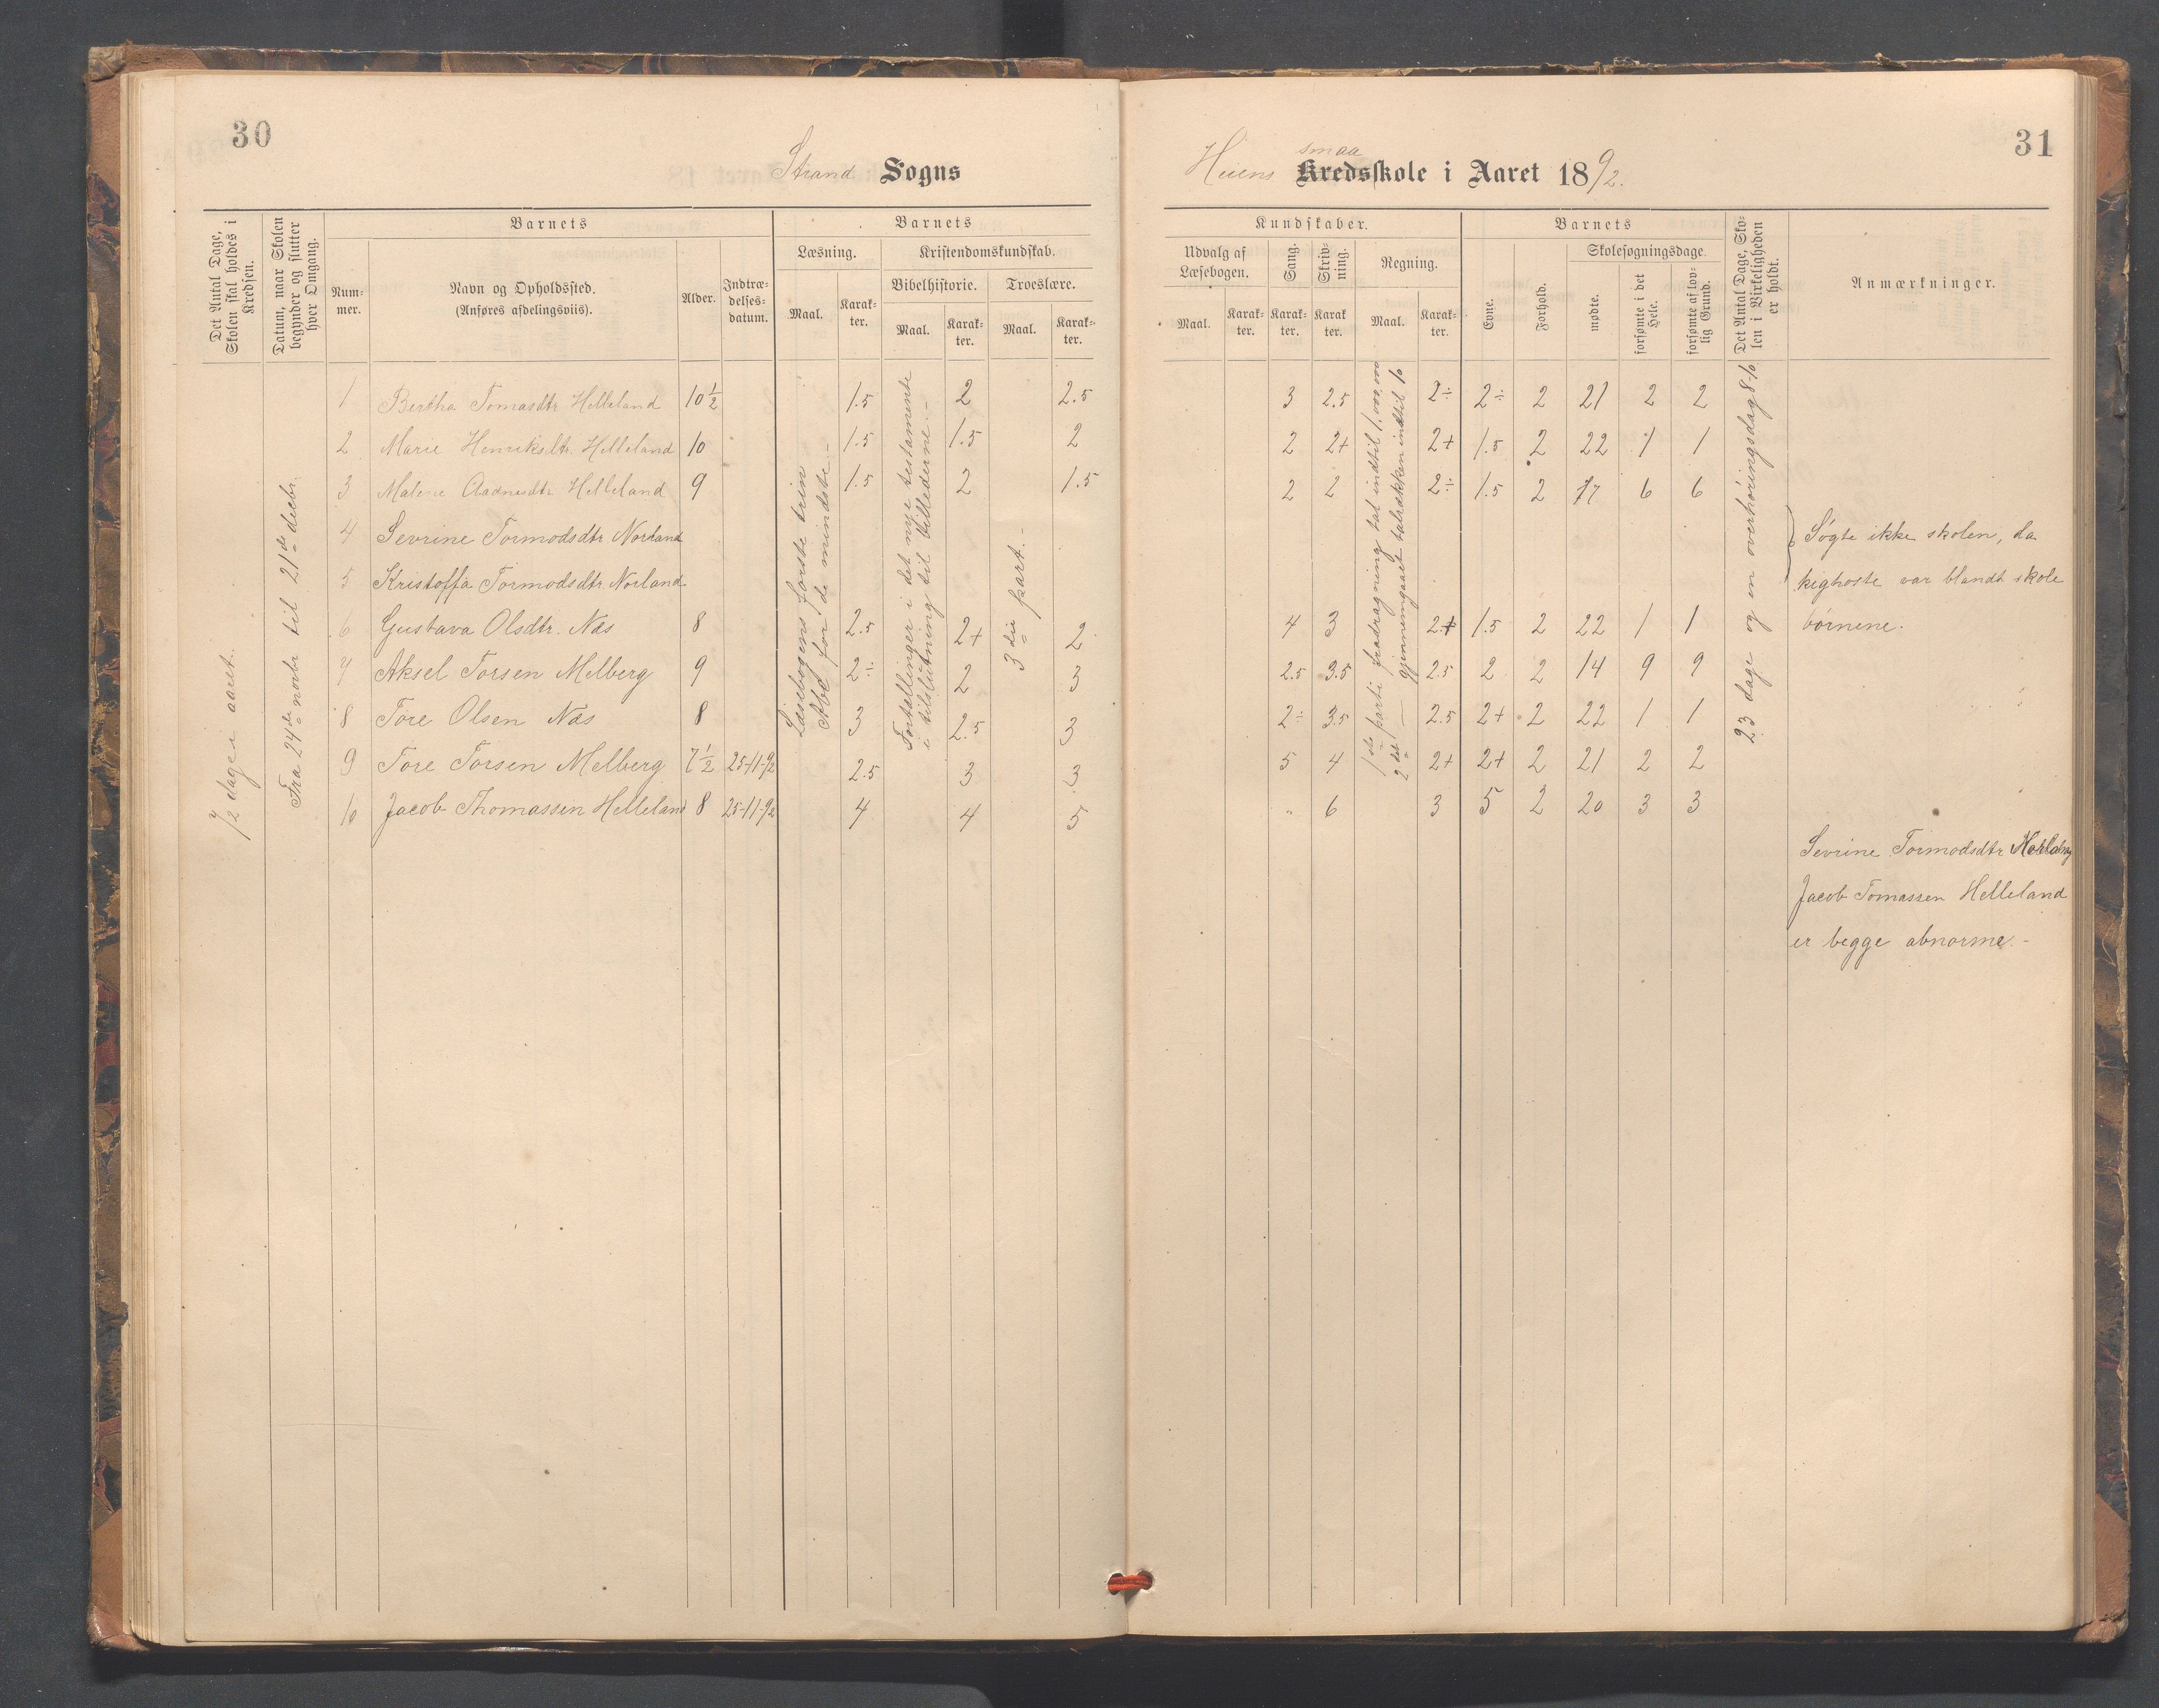 30
Strand Sogns
Det Antal Dage, Skolen skal holdes i Kredsen.
Datum, naar Skolen begynder og slutter hver Omgang.
Barnets
Num-
mer.
Navn og Opholdssted.
(Anføres afdelingsviis).
Alder.
Indtræ-
delses-
datum.
Barnets
Læsning.
Kristendomskundskab.
Bibelhistorie.
Troeslære.
Maal.
Karak-
ter.
Maal.
Karak-
ter.
Maal.
Karak-
ter.
72 dage i aaret.
Fra 24de novbr til 21de decbr.
Læsebogens første trin
Abc for de mindste.-
Fortællinger i det nye testamente
i tilslutning til billederne.-
3die part.-
1 Bertha Tomasdtr Helleland 10½ 1.5 2 2.5
2 Marie Henriksdtr. Helleland 10 1.5 1.5 2
3 Malene Aadnesdtr Helleland 9 1.5 2 1.5
4 Sevrine Tormodsdtr Norland
5 Kristoffa Tormodsdtr. Norland
6 Gustava Olsdtr. Næs 8 2.5 2+ 2
7 Aksel Torsen Melberg 9 2÷ 2 3
8 Tore Olsen Næs 8 3 2.5 3
9 Tore Torsen Melberg 7½ 25-11-92 2.5 3 3
10 Jacob Thomassen Helleland 8 25-11-92 4 4 5
31
smaa
Kredsskole i Aaret 1892.
Kundskaber.
Udvalg af
Læsebogen.
Sang.
Skriv-
ning.
Regning.
Maal.
Karak-
ter.
Karak-
ter.
Karak
ter.
Maal.
Karak-
ter.
Barnets
Evne.
Forhold.
Skolesøgningsdage
mødte.
forsømte i det Hele.
forsømte af lov-
lig Grund.
Det Antal Dage, Sko-
len i Virkeligheden
er holdt.
Anmærkninger.
1ste parti fradragning tal indtil 1,000,000
2det — gjennemgaaet talrækken indtil 10
23 dage og en overhøringsdag
3 2.5 2÷ 2÷ 2 21 2 2
2 2+ 2+ 1.5 2 22 1 1
2 2 2÷ 1.5 2 17 6 6
4 3 2+ 1.5 2 22 1 1
2.5 3.5 2.5 2 2 14 9 9
2÷ 3.5 2.5 2+ 2 22 1 1
5 4 2+ 2+ 2 21 2 2
" 6 3 5 2 20 3 3
Søgte ikke skolen, da
kighoste var blandt skole
børnene.
Sevrine Tormodsdtr
Jacob Tomassen Helleland
er begge abnorme.-